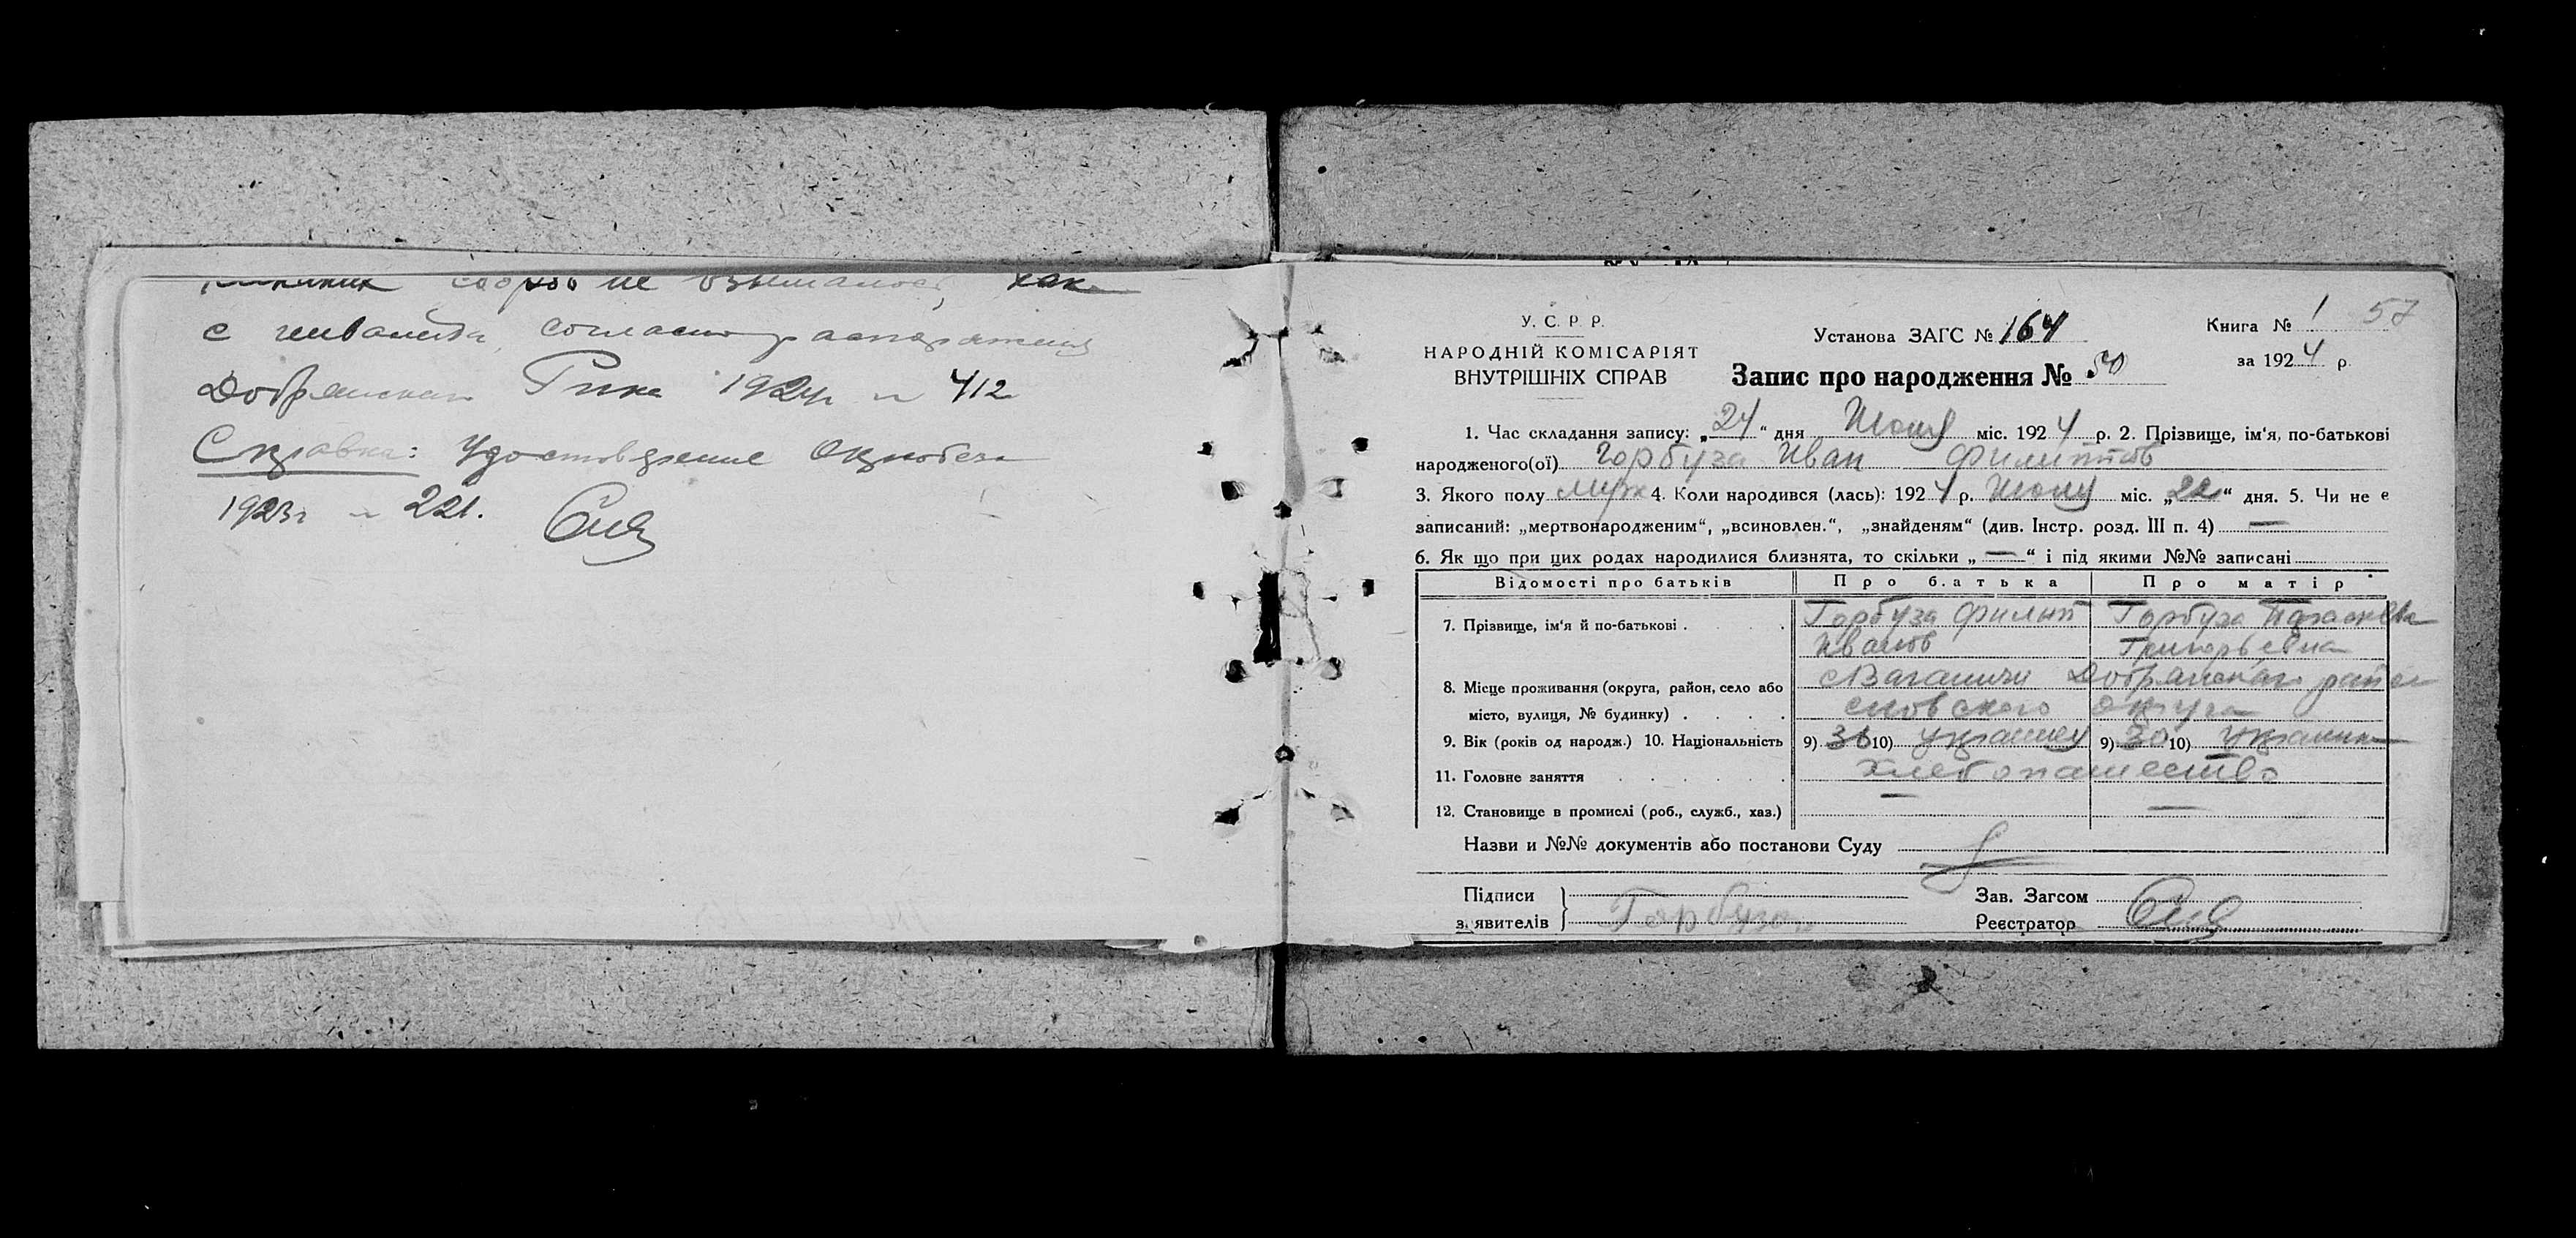 сборов не взымалось, как
с инвалида, согласно распоряжения
Добрянскаг Рика 1924г № 412
Справка: Удостоверение
1923г № 221.
У. С. Р. Р.
НАРОДНІЙ КОМІСАРІЯТ
ВНУТРІШНІХ СПРАВ
Установа ЗАГС № 164
Запис про народження № 50
Книга № 1 57
за 1924 р.
1. Час складання запису: „24“ дня Июня міс. 1924 р. 2. Прізвище, ім'я, по-батькові
народженого(ої) Горбуза Иван Филиппов
3. Якого полу муж 4. Коли народився (лась): 1924 р. Июня міс. „22“ дня. 5. Чи не є
записаний: „мертвонародженим“, „всиновлен.“, „знайденям“ (див. Інстр. розд. III п. 4) —
6. Як що при цих родах народилися близнята, то скільки „—“ і під якими №№ записані
Відомості про батьків Про батька Про матір
7. Прізвище, ім'я й по-батькові . Горбуза Филип Горбуза
Иванов Григорьевна
8. Місце проживання (округа, район, село або с Ваганичи Добрянскаг района
місто, вулиця, № будинку) . . . . сновского округа
9. Вік (років од народж.) 10. Національність 9) 36 10) украинец 9) 30 10) Украинка
11. Головне заняття . . . . . . хлебопашество
12. Становище в промислі (роб., служб., хаз.) — —
Назви и №№ документів або постанови Суду
Підписи
заявителів Горбуза
Зав. Загсом
Реєстратор